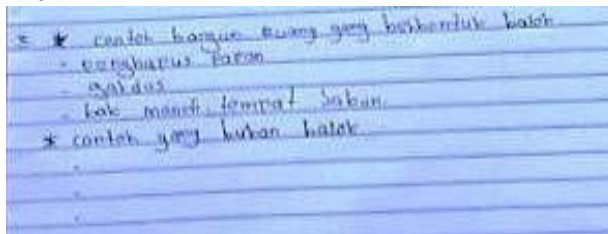 * contoh bangun ruang yang berbentuk balok
- penghapus papan
- gardus
- bak mandi, tempat sabun
* contoh yang bukan balok
-
-
-